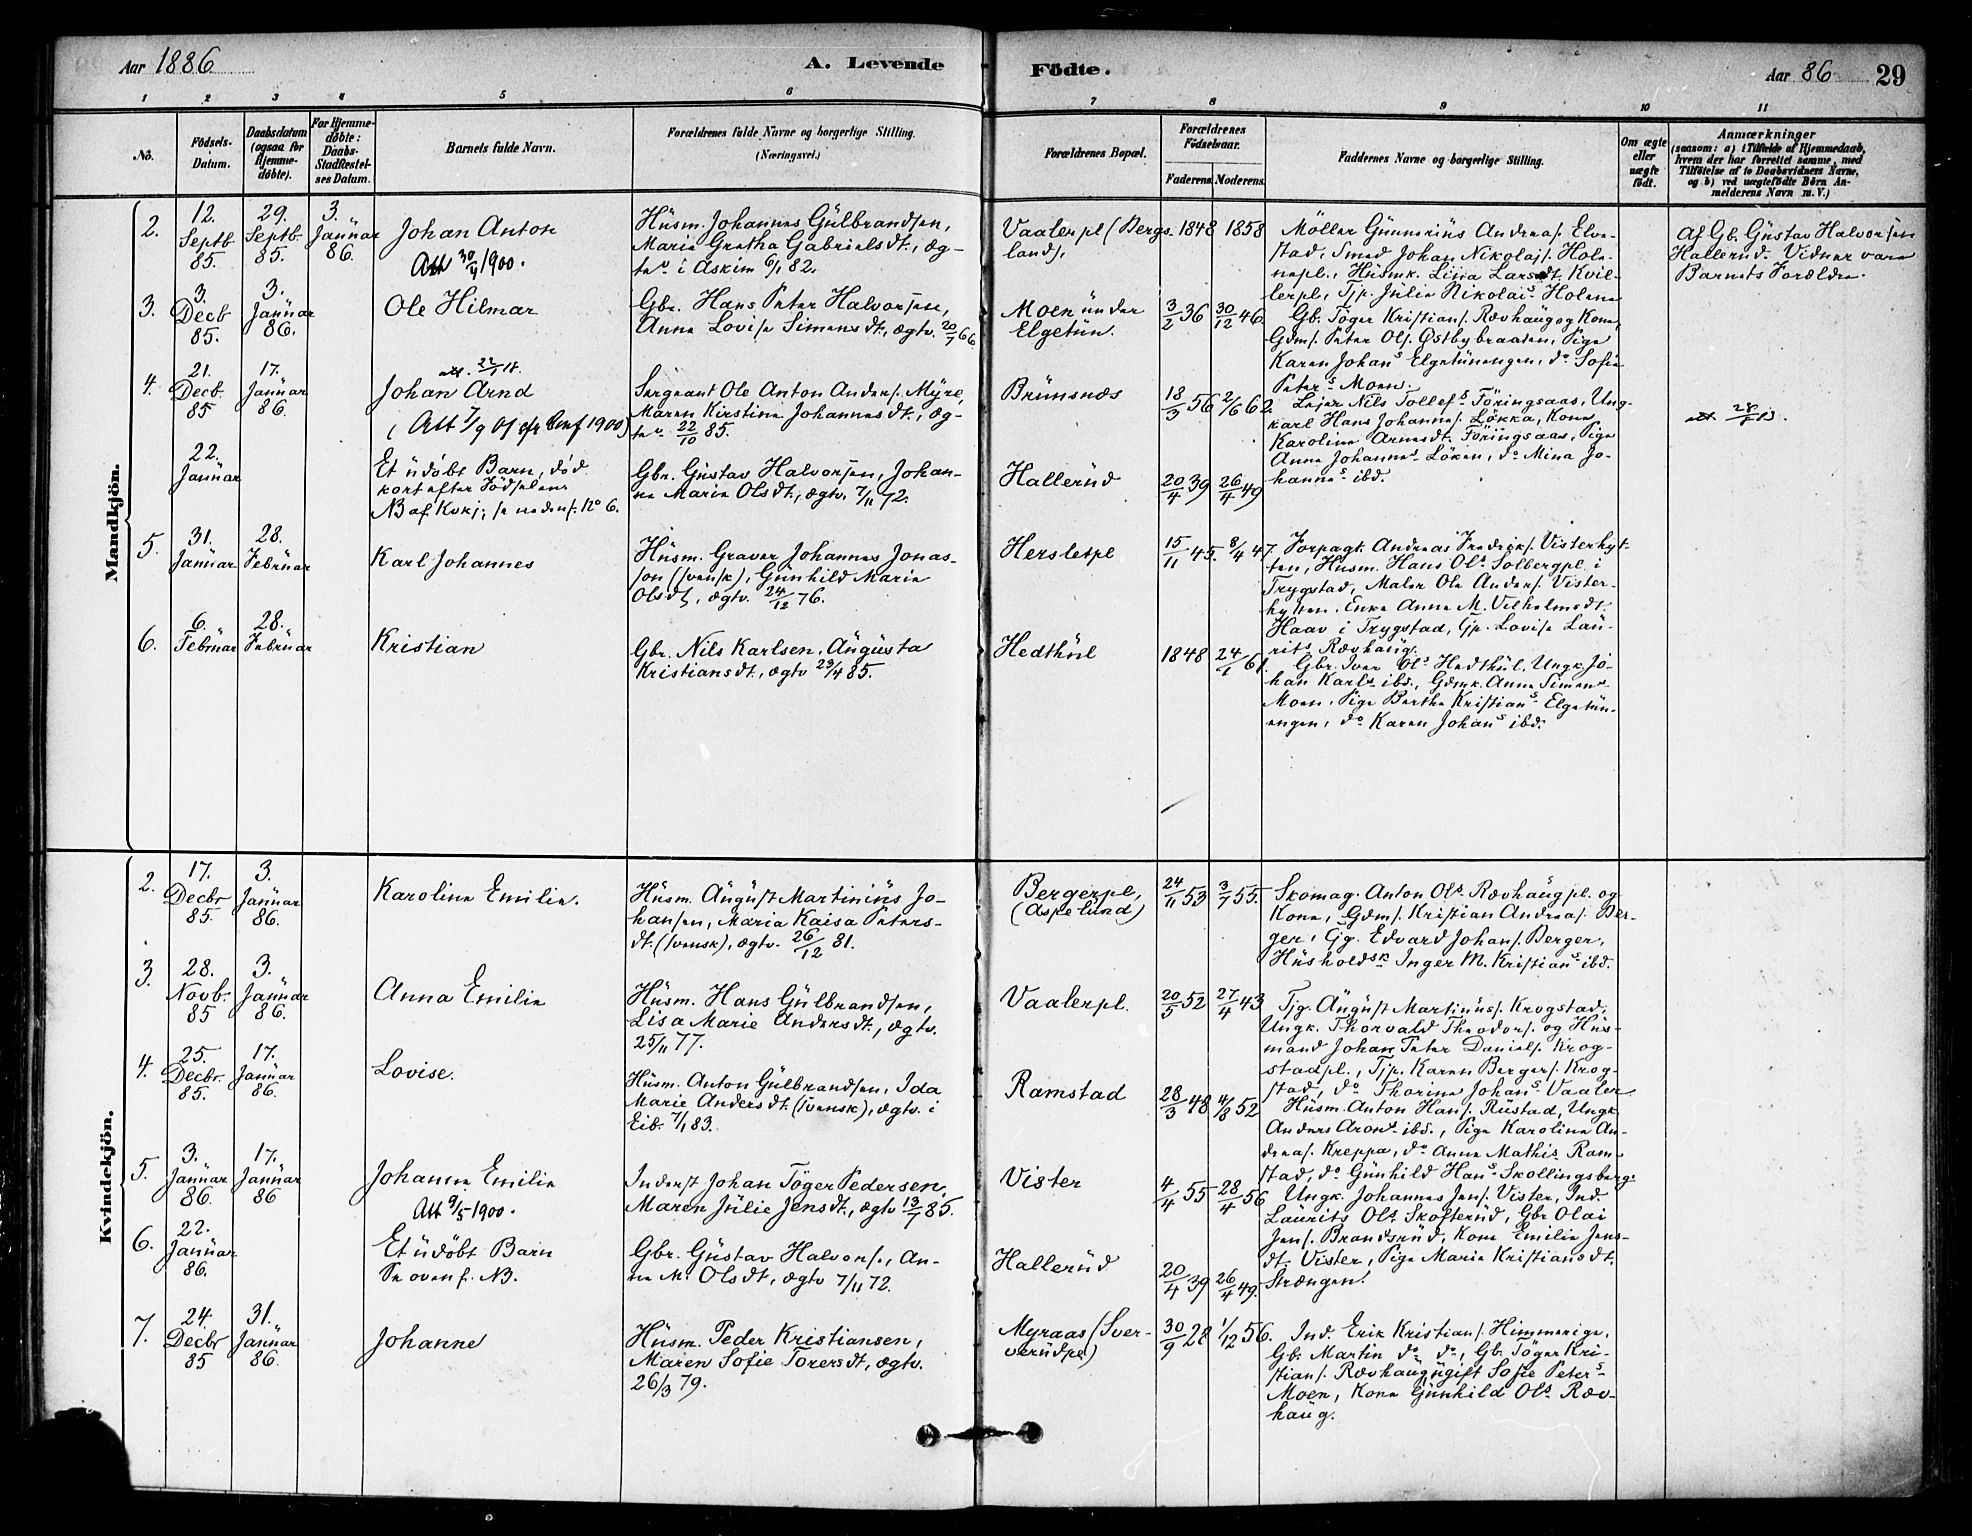 Aar 1886
A. Levende
Födte.
Aar 86
29
1 2 3 4 5 6 7 8 9 10 11
No.
Födsels-
Datum.
Daabsdatum
(ogsaa for
Hjemme-
döbte).
For Hjemme-
döbte:
Daabs-
Stadfæstel-
ses Datum.
Barnets fulde Navn.
Forældrenes fulde Navne og borgerlige Stilling.
(Næringsvei.)
Forældrenes Bopæl.
Forældrenes
Födselsaar.
Faderens. Moderens.
Faddernes Navne og borgerlige Stilling.
Om ægte
eller
uægte
födt.
Anmærkninger
(saasom: a) i Tilfælde af Hjemmedaab,
hvem der har forrettet samme, med
Tilföielse af to Daabsvidners Navne,
og b) ved uægtefödte Börn An-
melderens Navn m. V.)
Mandkjön.
2.
12.
Septb.
85.
29.
Septb.
85.
3.
Januar
86.
Johan Anton
Att 30/4 1900.
Husm. Johannes Gulbrandsen,
Maria Gretha Gabrielsdt., æg-
tev. i Askim 6/1 82.
Vaalerpl (Bergs-
land).
1848 1858
Möller Gunnerius Andreas. Elve-
stad, Smed Johan Nikolajs. Hole-
nepl., Husmk. Lina Larsdt. Kvil-
lerpl., Tjp. Julia Nikolais Holene
Af Gb. Gustav Halvorsen
Hallerud. Vidner vare
Barnets Forældre.
3.
3.
Decb
85.
3.
Januar
86.
Ole Hilmar
Gbr. Hans Peter Halvorsen,
Anna Lovise Simensdt., ægtv. 20/7 66.
Moen under
Elgetun.
3/2 36 30/12 46.
Gb. Töger Kristians. Rævhaug og Kone,
Gdms. Peter Ols. Østbybraaten, Pige
Karen Johans Elgetunengen, do Sofie
Peters Moen.
4.
21.
Decb.
85
17.
Januar
86.
att. 22/1 18.
Johan Arnd
(Att 7/9 01 for Conf 1900)
Sergeant Ole Anton Anders. Myre,
Maren Kirstine Johannesdt., æg-
tev. 22/10 85.
Brunsnæs
18/3 56 2/6 62.
Leier Nils Tollefs Föringsaas, Ung-
karl Hans Johannes. Løkka, Kone
Karoline Arnesdt. Föringsaas, Pige
Anne Johannes Løken, do Mina Jo-
hannes ibd.
22.
Januar
Et udøbt Barn, død
kort efter Födselen.
NB af Kvkj; se nedenf. No 6.
Gbr. Gustav Halvorsen, Johan-
ne Marie Olsdt., ægtv. 7/11 72.
Hallerud
20/4 39 26/4 49
5.
31.
Januar
28.
Februar
Karl Johannes
Husm. Graver Johannes Jonas-
son (svensk), Gunhild Marie
Olsdt., ægtv. 24/12 76.
Hersletpl
15/11 45. 8/4 47.
Forpagt. Andreas Fredriks. Visterhyt-
ten, Husm. Hans Ols Solbergpl. i
Trygstad, Maler Ole Anders. Vister-
hytten, Enke Anne M. Vilhelmsdt.
Haav i Trygstad, Gp. Lovise Lau-
rits Rævhaug.
6.
6.
Februar
28.
Februar
Kristian
Gbr. Nils Karlsen, Augusta
Kristiansdt., ægtv 23/4 85.
Hedthul
1848 24/1 61.
Gbr. Iver Ols Hedthul, Ungk. Jo-
han Karls ibd., Gdmk. Anne Simens
Moen, Pige Berthe Kristians Elgetun-
engen, do Karen Johans ibd.
Kvindekjön.
2.
17.
Decbr
85.
3.
Januar
86.
Karoline Emilie.
Husm. August Martinius Jo-
hansen, Maria Kaisa Peters-
dt. (svensk), ægtv. 26/12 81.
Bergerpl,
(Aspelund)
24/11 53 3/7 55.
Skomag. Anton Ols. Rævhaugpl. og
Kone, Gdms. Kristian Andreas. Ber-
ger, Gg. Edvard Johans. Berger,
Husholdsk Inger M. Kristians ibd.
3.
28.
Novb.
85
3.
Januar
86.
Anna Emilie
Husm. Hans Gulbrandsen,
Lisa Marie Andersdt., ægtv.
25/11 77.
Vaalerpl.
20/5 52 27/4 43
Tjg. August Martinus. Krogstad,
Ungk. Thorvald Theodors. og Hus-
mand Johan Peter Daniels. Krog-
stadpl., Tjp. Karen Bergers. Krog-
stad, do Thorine Johans Vaaler
4.
25.
Decbr.
85.
17.
Januar
86.
Lovise.
Husm. Anton Gulbrandsen, Ida
Marie Andersdt. (svensk), ægtv. i
Eib. 7/1 83.
Ramstad
28/3 48 4/8 52
Husm. Anton Hans. Rustad, Ungk.
Anders Arons ibd., Pige Karoline An-
dreas. Kreppa, do Anne Mathis. Ram-
stad, do Gunhild Hans Skollingsberg
5.
3.
Januar
86.
17.
Januar
86
Johanne Emilie
Att 9/5 1900.
Inderst Johan Töger Pedersen,
Maren Julie Jensdt., ægtv 13/7 85.
Vister
4/4 55 28/4 56
Ungk. Johannes Jens. Vister, Ind.
Laurits Ols. Skofterud, Gbr Olai
Jens. Brandsrud, Kone Emilie Jens-
dt. Vister, Pige Marie Kristiansdt.
Strængen.
6.
22.
Januar
86.
Et udøbt Barn
Se ovenf. NB.
Gbr. Gustav Halvors., An-
ne M. Olsdt, ægtv 7/11 72.
Hallerud
20/4 39 26/4 49.
7.
24.
Decbr
85
31.
Januar
86.
Johanne
Husm. Peder Kristiansen,
Maren Sofie Torersdt, ægtv.
26/3 79.
Myraas (Sver-
verudpl)
30/9 28 1/12 56.
Ind. Erik Kristians. Himmerige,
Gb. Martin do do, Gb. Töger Kri-
stians. Rævhaug, ugift Sofie Peters
Moen, Kone Gunhild Ols. Ræv-
haug.